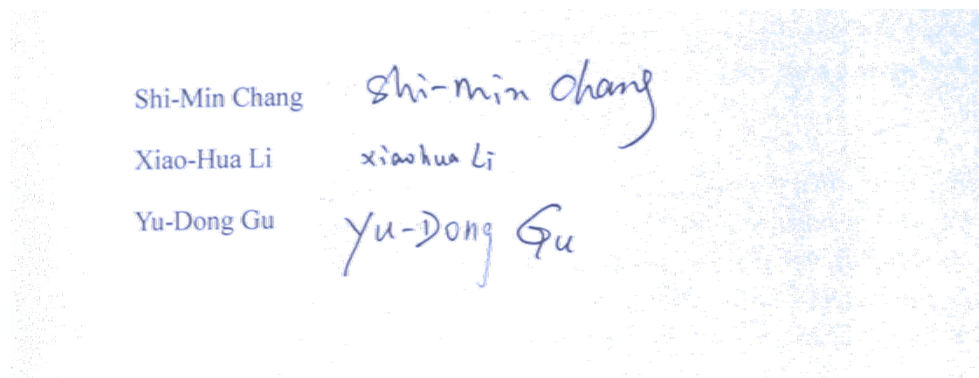 Shi-Min Chang Shi-min Chang
Xiao-Hua Li xiaohua Li
Yu-Dong Gu Yu-Dong Gu